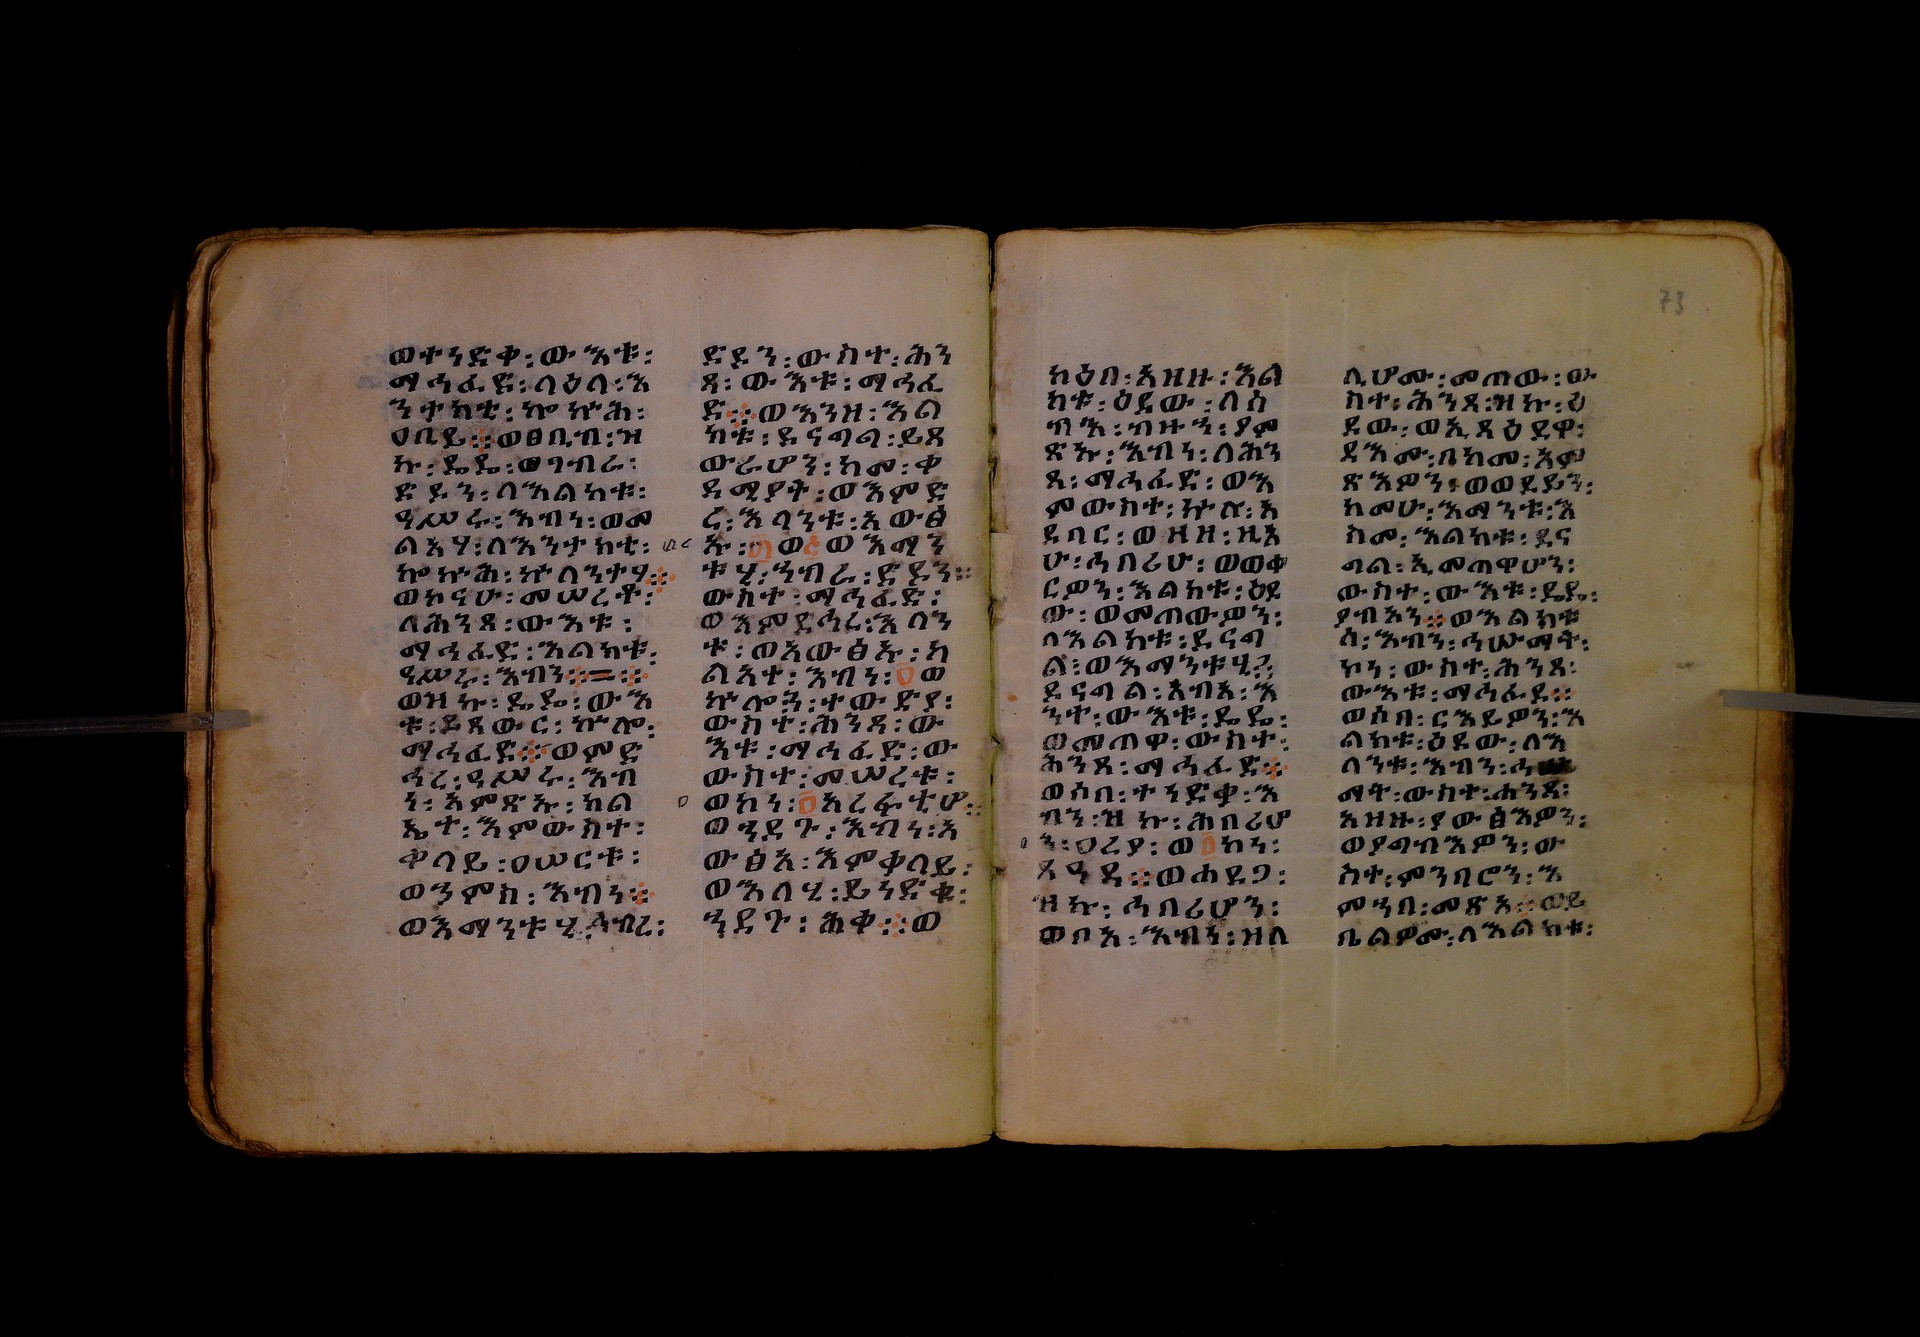 ወተነድቀ፡ውእቱ፡
ማኅፈድ፡ በዕለ፡እ
ንተክቲ፡ ኰኵሕ፡
ዐቢይ፨ወፀቢብ፡ዝ
ኩ፡ዴዴ፡ወገብረ፡
ድደን፡ በእልክቱ፡
ዓሠሩ፡እብን፡ወመ
ልእሃ፡ለእንታክቲ፡
ኰኵሕ፡ኵለንተሃ፨
ወከናሁ፡መሠረቶ፡
ለሕንጻ፡ውእቱ፡
ማኅፈድ፡እልክቱ፡
ዓሠሩ፡እብን፨=፨
ወዝኩ፡ዴዴ፡ውእ
ቱ፡ይጸውር፡ኵሎ፡
ማኅፈድ፨ወምድ
ኅረ፡ዓሠሩ፡እብ
ን፡እምጽኡ፡ካል
ኤተ፡እምውስተ፡
ቀላይ፡ዐሠርቱ፡
ወኀምስ፡እብን፨
ወእማንቱሂ፡ኀብረ፡
ድደን፡ውስተ፡ሕን
ጻ፡ውእቱ፡ማኅፈ
ድ፨ወእንዘ፡እል
ክቱ፡ደናግል፡ይጸ
ውራሆን፡ከመ፡ቀ
ዳሚያት፡ወእምድ
ኅረ፡እላንቱ፡አውፅ
ኡ፡፴ወ፭ወእማን
ቱሂ፡ኀብረ፡ድደን፡፡
ውስተ፡ማኅፈድ፡
ወእምደኅረ፡እላን
ቱ፡ወአውፅኡ፡ካ
ልአተ፡እብነ፡፵ወ
ኵሎን፡ተውድያ፡
ውስተ፡ሕንጻ፡ው
እቱ፡ማኅፈድ፡ው
ውስተ፡መሠረቱ፡
ወኮነ፡፬አረፍቲሆ፡፡
ወኀደጉ፡እብነ፡አ
ውፅአ፡እምቀላይ፡
ወእለሂ፡ይነድቁ፡
ኀደጉ፡ሕቀ፨ወ
73
ካዕበ፡አዘዙ፡እል
ክቱ፡ዕደው፡ለሰ
ብእ፡ብዙኅ፡ያም
ጽኡ፡እብነ፡ለሕን
ጻ፡ማኅፈድ፡ወእ
ምውስተ፡ኵሉ፡አ
ድባር፡ወዘዘ፡ዚአ
ሁ፡ኅብሪሁ፡ወወቀ
ርዎን፡እልክቱ፡ዕደ
ው፡ወመጠውዎን፡
ለእልክቱ፡ደናግ
ል፡ወእማንቱሂ፡
ደናግል፡አብአ፡እ
ንተ፡ውእቱ፡ዴዴ፡
ወመጠዋ፡ውስተ፡
ሕንጻ፡ማኅፈድ፨
ወሶበ፡ተነድቀ፡እ
ብን፡ዝኩ፡ሕበሪሆ
ን፡ዐረየ፡ወ፩ኮነ፡
ጸዓዳ፨ወሐደገ፡
ዝኩ፡ኅበሪሆን፡
ወቦአ፡እብን፡ዝለ
ሊሆሙ፡መጠው፡ው
ስተ፡ሕንጻ፡ዝኩ፡ዕ
ደው፡ወኢጻዕደዋ፡
ደእሙ፡በከመ፡አም
ጽእዎን፡ወወደይዎን፡
ከመሁ፡እማንቱ፡እ
ስመ፡እልክቱ፡ደና
ግል፡ኢመጠዋሆን፡
ውስተ፡ውእቱ፡ዴዴ፡
ያብእን፨ወእልክቱ
ሰ፡እብን፡ኅሡማት፡
ኮነ፡ውስተ፡ሕንጻ፡
ውእቱ፡ማኅፈድ፨
ወሶበ፡ርእይዎን፡እ
ልክቱ፡ዕደው፡ለእ
ላንቱ፡እብን፡
ማት፡ውስተ፡ሐንጻ፡
አዘዙ፡ያውፅእዎን፡
ወያግብእዎን፡ው
ስተ፡ምንባሮን፡እ
ምኀበ፡መጽአ፨ወይ
ቤልዎሙ፡ለእልክቱ፡